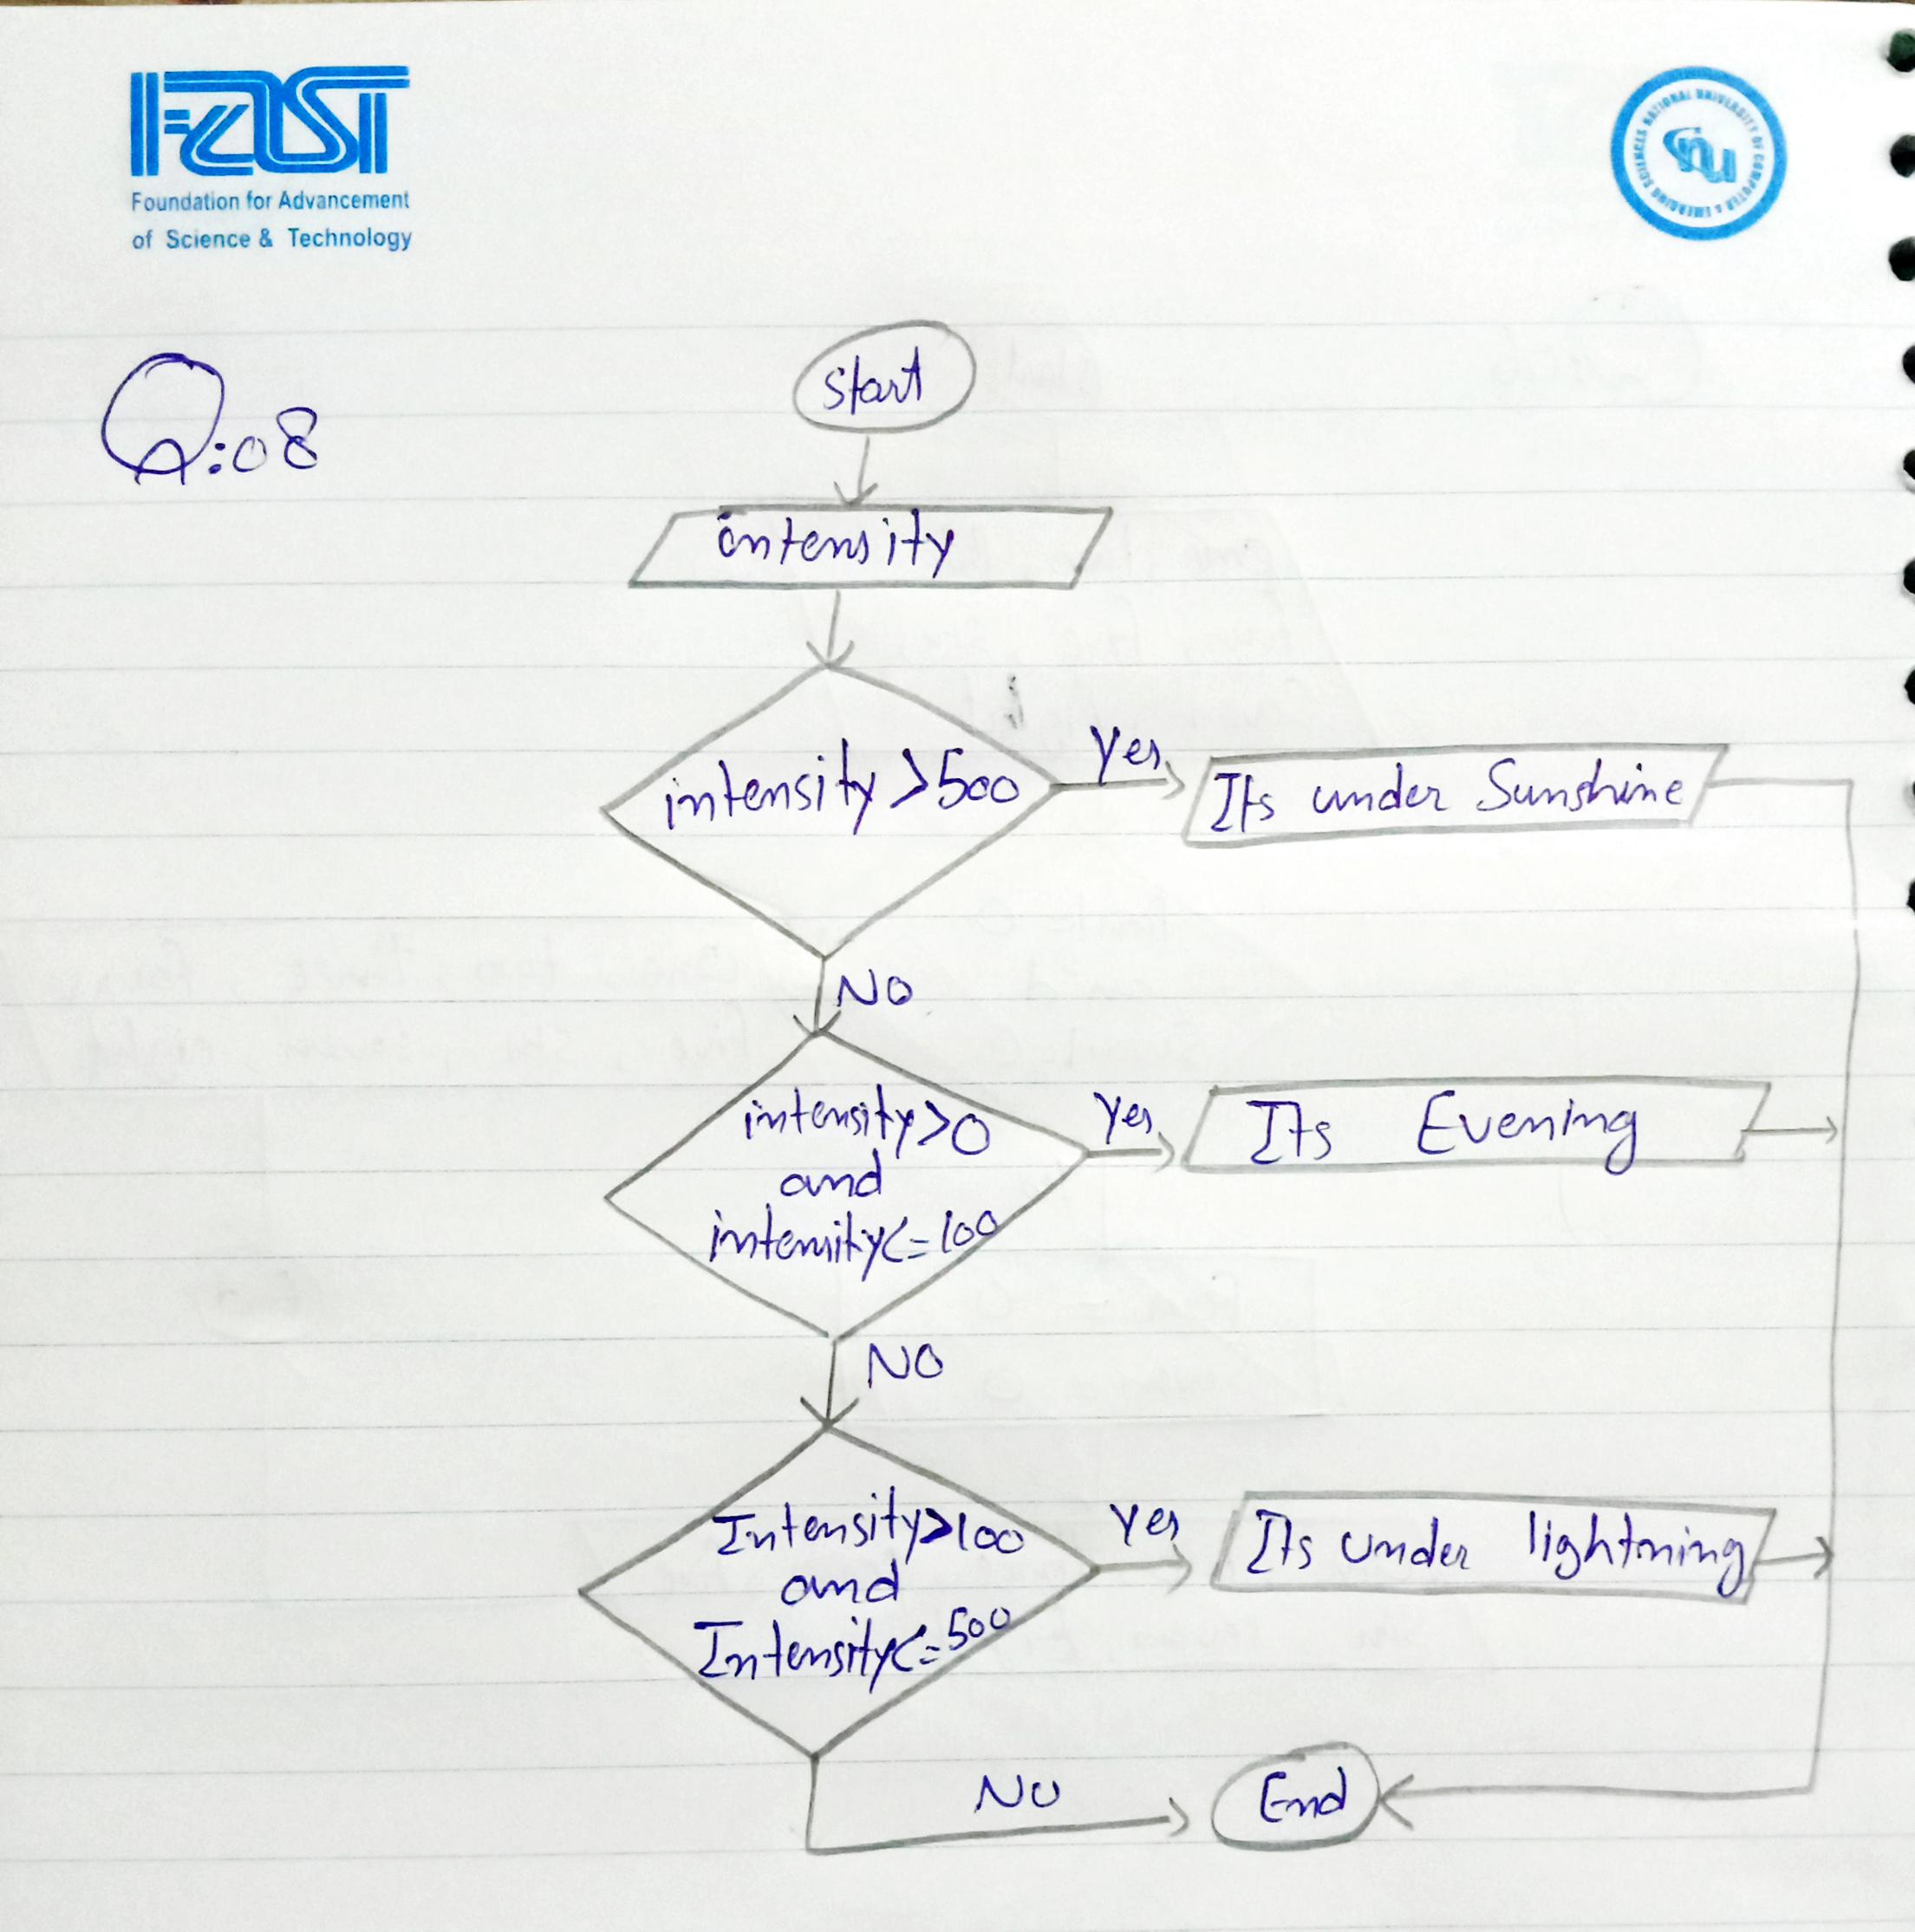 FAST
Foundation for Advancement
of Science & Technology
NATIONAL UNIVERSITY OF COMPUTER & EMERGING SCIENCES
nu
Q:08
start
intensity
intensity >500
Yes
Its under Sunshine
NO
intensity>0
and
intensity<=100
Yes
Its Evening
NO
Intensity>100
and
Intensity<=500
Yes
Its under lightning
NO
End